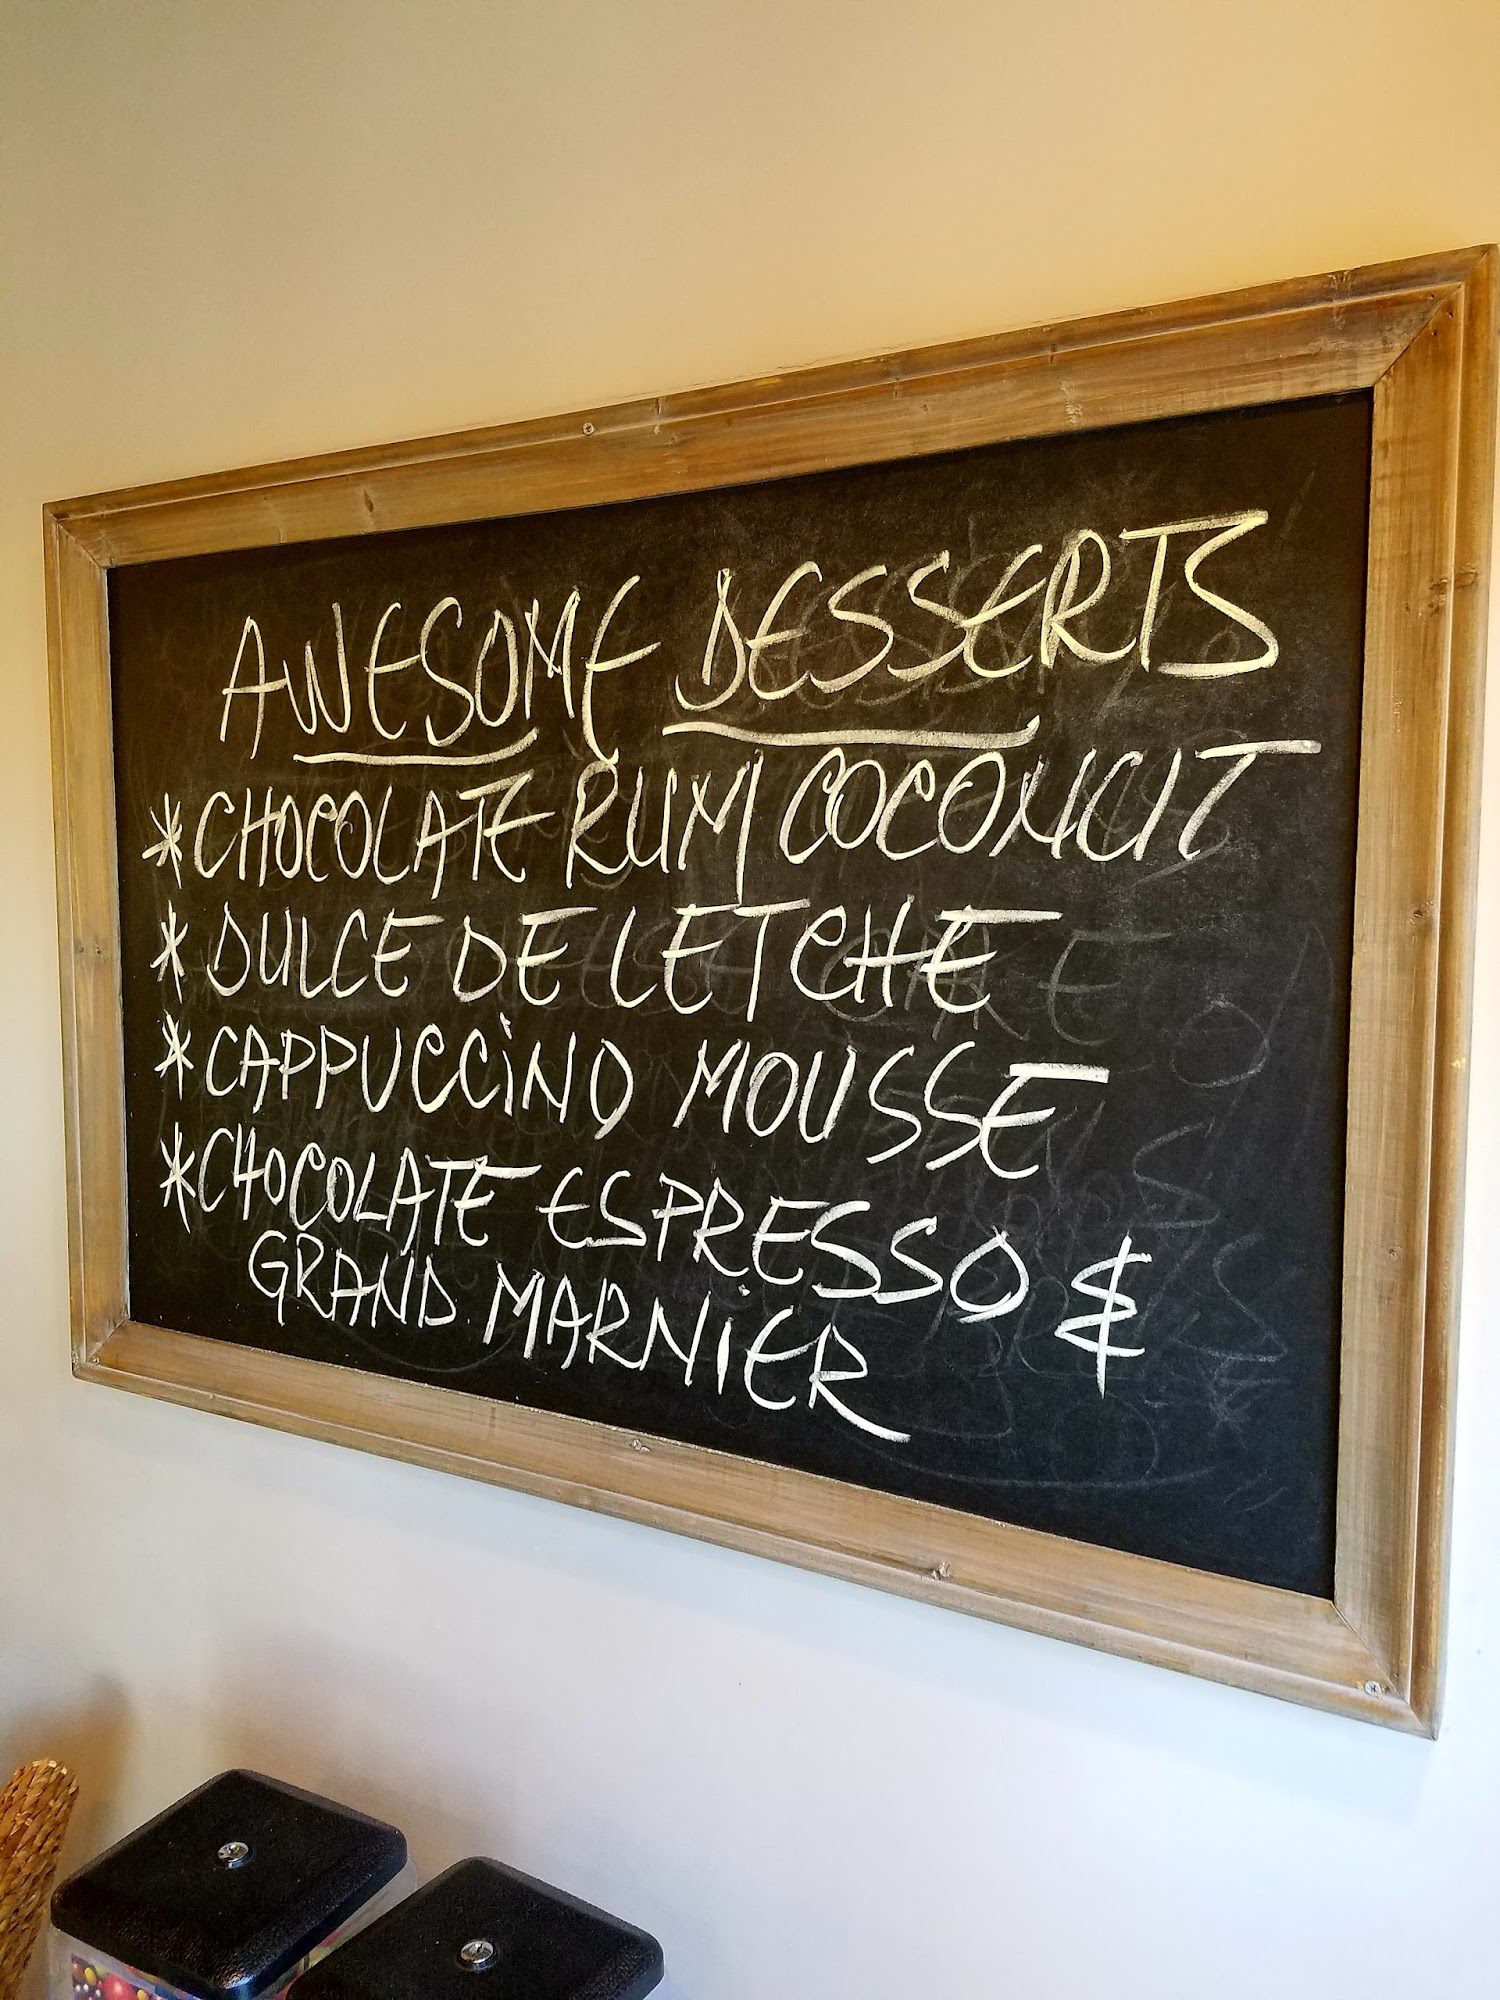 AWESOME DESSERTS
* CHOCOLATE RUM COCONUT
* DULCE DE LETCHE
* CAPPUCCiNO MOUSSE
* CHOCOLATE ESPRESSO &
GRAND MARNiER